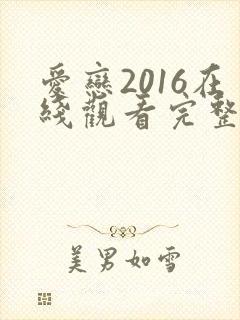 愛戀2016在
綫觀看完整
美男如雪